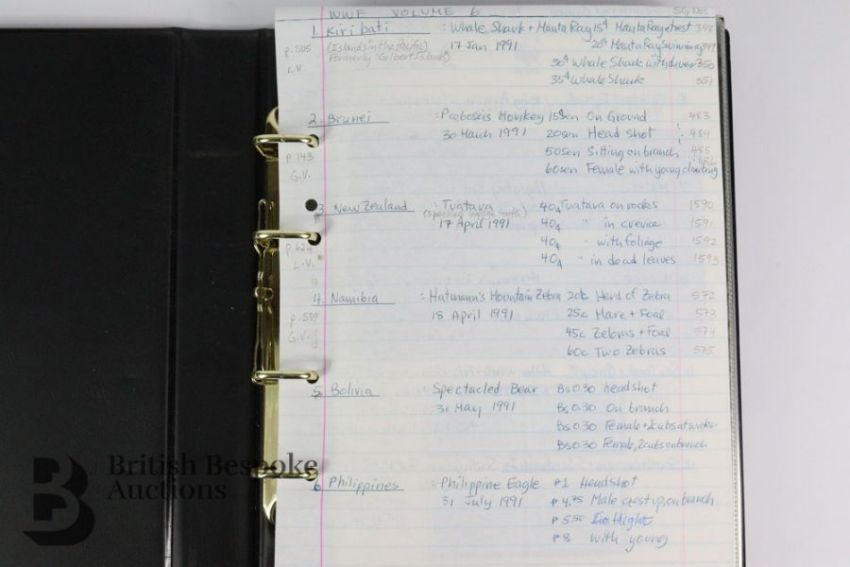 WWF VOLUME 6 SG No
1. Kiribati : Whale Shark + Manta Ray 15¢ Manta Ray + crest 348
p. 505 (Islands in the Pacific) 17 Jan 1991 20¢ Manta Ray swimming 349
L.V. Formerly "Gilbert Islands" 30¢ Whale Shark with divers 350
35¢ Whale Shark 351
2. Brunei : Proboscis Monkey 15sen On Ground 483
30 March 1991 20sen Head shot 484
p. 143 50sen Sitting on branch 485
G.V. 60sen Female with young climbing
3. New Zealand : Tuatara 40¢ Tuatara on rocks 1590
17 April 1991 40¢ " in crevice 1591
p. 624 40¢ " with foliage 1592
L.V. 40¢ " in dead leaves 1593
4. Namibia : Hartmann's Mountain Zebra 20c Head of Zebra 572
p. 589 18 April 1991 25c Mare + Foal 573
G.V. 45c Zebras + Foal 574
60c Two Zebras 575
5. Bolivia : Spectacled Bear Bs0.30 headshot
31 May 1991 Bs0.30 On branch
Bs0.30 Female + 2 cubs at water
Bs0.30 Female, 2 cubs on branch
6. Philippines : Philippine Eagle ₱1 Headshot
31 July 1991 ₱4.75 Male crest up, on branch
₱5.50 In flight
₱8 with young
British Bespoke
Auctions